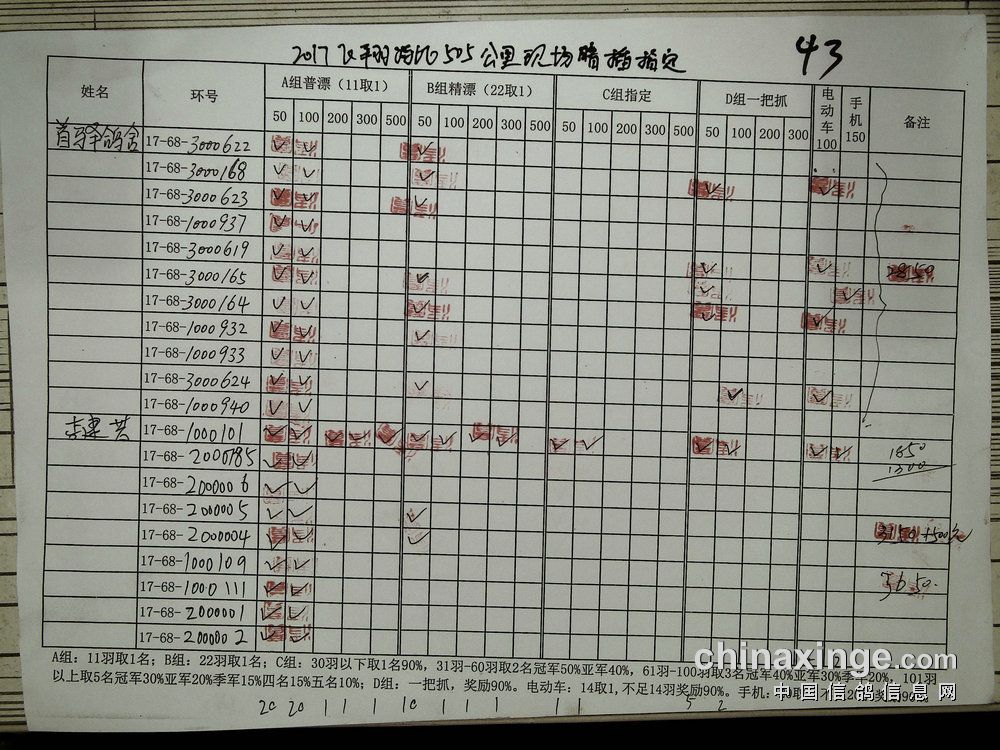 2017飞翔 505公里现场 指定
43
姓名 环号 A组普漂（11取1） B组精漂（22取1） C组指定 D组一把抓 电动车100 手机150 备注
50 100 200 300 500 50 100 200 300 500 50 100 200 300 500 50 100 200 300
17-68-3000622
17-68-3000168
17-68-3000623
17-68-1000937
17-68-3000619
17-68-3000165
17-68-3000164
17-68-1000932
17-68-1000933
17-68-3000624
17-68-1000940
李建 17-68-1000101
17-68-2000185 1850
1300
17-68-2000006
17-68-2000005
17-68-2000004 3150+500元
17-68-1000109
17-68-1000111 3650.
17-68-2000001
17-68-2000002
A组：11羽取1名；B组：22羽取1名；C组：30羽以下取1名90%，31羽-60羽取2名冠军50%亚军40%，61羽-100羽取3名冠军40%亚军30%季军20%，101羽
以上取5名冠军30%亚军20%季军15%四名15%五名10%；D组：一把抓，奖励90%。电动车：14取1,不足14羽奖励90%。手机：
20 20 1 1 1 10 1 1 1 1 1 5 2
chinaxinge.com
中国信鸽信息网